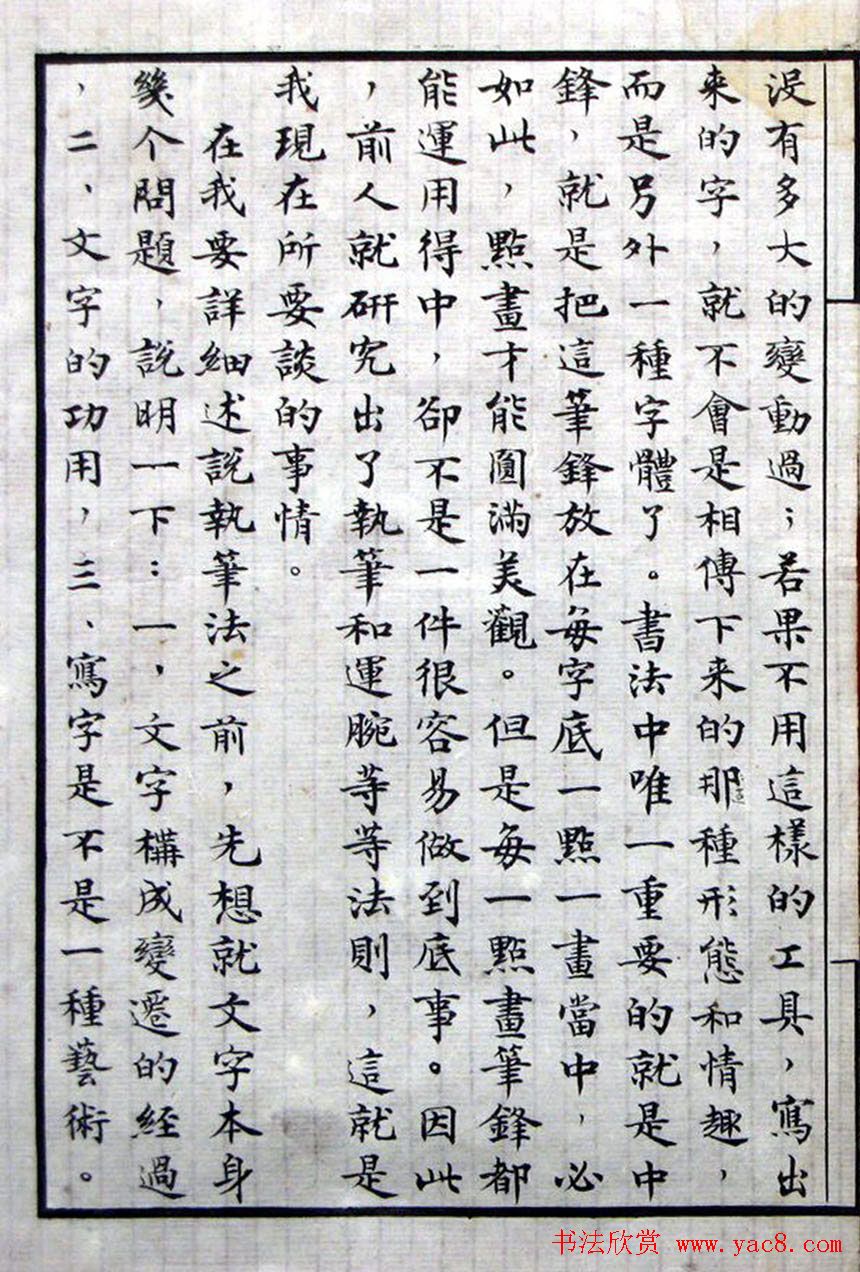 沒有多大的變動過；若果不用這樣的工具，寫出
来的字，就不會是相傳下来的那種形態和情趣，
而是另外一種字體了。書法中唯一重要的就是中
鋒，就是把這筆鋒放在每字底一點一畫當中，必
如此，點畫才能圓滿美觀。但是每一點畫筆鋒都
能運用得中，卻不是一件很容易做到底事。因此
，前人就研究出了執筆和運腕等等法則，這就是
我現在所要談的事情。
在我要詳細述說執筆法之前，先想就文字本身
幾个問題，說明一下：一，文字構成變遷的經過
，二、文字的功用，三、寫字是不是一種藝術。
书法欣赏 www.yac8.com